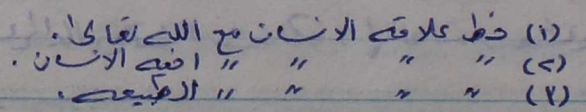 (١) خط علاقة الانسان مع الله تعالى.
(٢) " " " " اخيه الانسان.
(٣) " " " " الطبيعة.